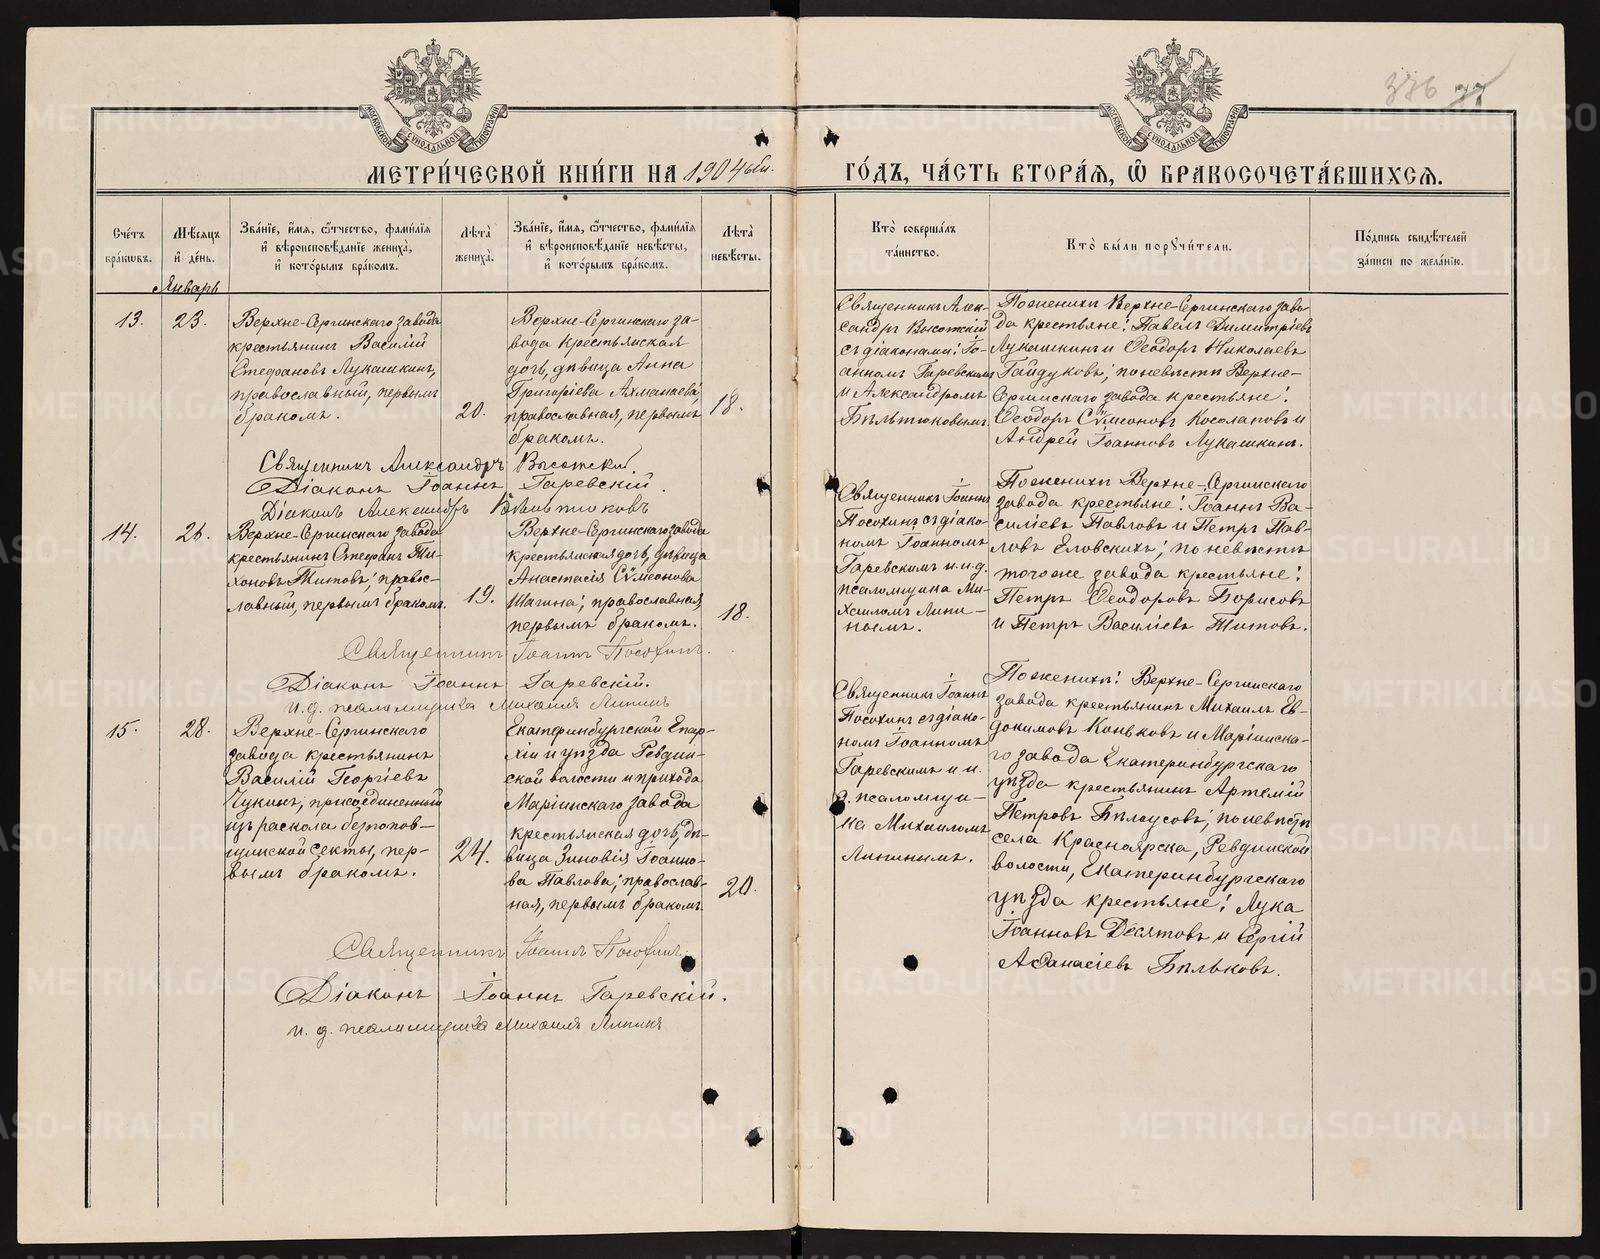 376 77
МОСКОВСКОЙ СѴНОДАЛЬНОЙ ТИПОГРАФІИ
МОСКОВСКОЙ СѴНОДАЛЬНОЙ ТИПОГРАФІИ
МЕТРИ́ЧЕСКОЙ КНИ́ГИ НА 1904 ый.
ГО́ДЪ, ЧА́СТЬ ВТОРА́Я, Ѽ БРАКОСОЧЕТА́ВШИХСЯ.
Сче́тъ бра́ковъ.
Мѣсяцъ и҆ де́нь.
Зва́нїе, и҆́мя, ѻ҆́тчество, фами́лїя
и҆ вѣроисповѣ́данїе жениха̀,
и҆ кото́рымъ бра́комъ.
Лѣта̀ жениха̀.
Зва́нїе, и҆́мя, ѻ҆́тчество, фами́лїя
и҆ вѣроисповѣ́данїе невѣ́сты,
и҆ кото́рымъ бра́комъ.
Лѣта̀ невѣ́сты.
Кто̀ соверша́лъ
та́инство.
Кто̀ бы́ли порꙋчи́тели.
По́дпись свидѣ́телей
за́писи по жела́нїю.
Январь
13. 23.
Верхне-Сергинскаго завода
крестьянинъ Василій
Стефановъ Лукашкинъ,
православный, первымъ
бракомъ.
20.
Верхне-Сергинскаго за-
вода крестьянская
дочь, дѣвица Анна
Григоріева Ахманаева,
православная, первымъ
бракомъ.
18.
Священникъ Алек-
сандръ Высотскій
съ діаконами: Іо-
анномъ Гаревскимъ
и Александромъ
Бѣльтюковымъ.
По женихѣ Верхне-Сергинскаго заво-
да крестьяне: Павелъ Димитріевъ
Лукашкинъ и Ѳеодоръ Николаевъ
Гайдуковъ; по невѣстѣ Верхне-
Сергинскаго завода крестьяне:
Ѳеодоръ Сѵмеоновъ Косолаповъ и
Андрей Іоанновъ Лукашкинъ.
Священникъ Александръ Высотскій.
Діаконъ Іоаннъ Гаревскій.
Діаконъ Александръ Бѣльтюковъ
14. 26.
Верхне-Сергинскаго завода
крестьянинъ Стефанъ Ти-
хоновъ Титовъ; правос-
лавный, первымъ бракомъ.
19.
Верхне-Сергинскаго завода
крестьянская дочь, дѣвица
Анастасія Сѵмеонова
Шагина; православная,
первымъ бракомъ.
18.
Священникъ Іоаннъ
Посохинъ съ діако-
номъ Іоанномъ
Гаревскимъ и и.д.
псаломщика Ми-
хаиломъ Липи-
нымъ.
По женихѣ Верхне-Сергинскаго
завода крестьяне: Іоаннъ Ва-
силіевъ Павловъ и Петръ Пав-
ловъ Еловскихъ; по невѣстѣ
того же завода крестьяне:
Петръ Ѳеодоровъ Борисовъ
и Петръ Василіевъ Титовъ.
Священникъ Іоаннъ Посохинъ.
Діаконъ Іоаннъ Гаревскій.
и. д. псаломщика Михаилъ Липинъ
15. 28.
Верхне-Сергинскаго
завода крестьянинъ
Василій Георгіевъ
Чукинъ, присоединенный
изъ раскола безпопов-
щинской секты, пер-
вымъ бракомъ.
24.
Екатеринбургской Епар-
хіи и уѣзда Ревдин-
ской волости и прихода
Маріинскаго завода
крестьянская дочь, дѣ-
вица Зиновія Іоанно-
ва Павлова; православ-
ная, первымъ бракомъ.
20.
Священникъ Іоаннъ
Посохинъ съ діако-
номъ Іоанномъ
Гаревскимъ и и.
д. псаломщи-
ка Михаиломъ
Липинымъ.
По женихѣ: Верхне-Сергинскаго
завода крестьянинъ Михаилъ Ев-
докимовъ Коньковъ и Маріинска-
го завода Екатеринбургскаго
уѣзда крестьянинъ Артемій
Петровъ Бѣлоусовъ; по невѣстѣ
села Красноярска, Ревдинской
волости, Екатеринбургскаго
уѣзда крестьяне: Лука
Іоанновъ Десятовъ и Сергій
Аѳанасіевъ Бѣльковъ.
Священникъ Іоаннъ Посохинъ.
Діаконъ Іоаннъ Гаревскій.
и. д. псаломщика Михаилъ Липинъ